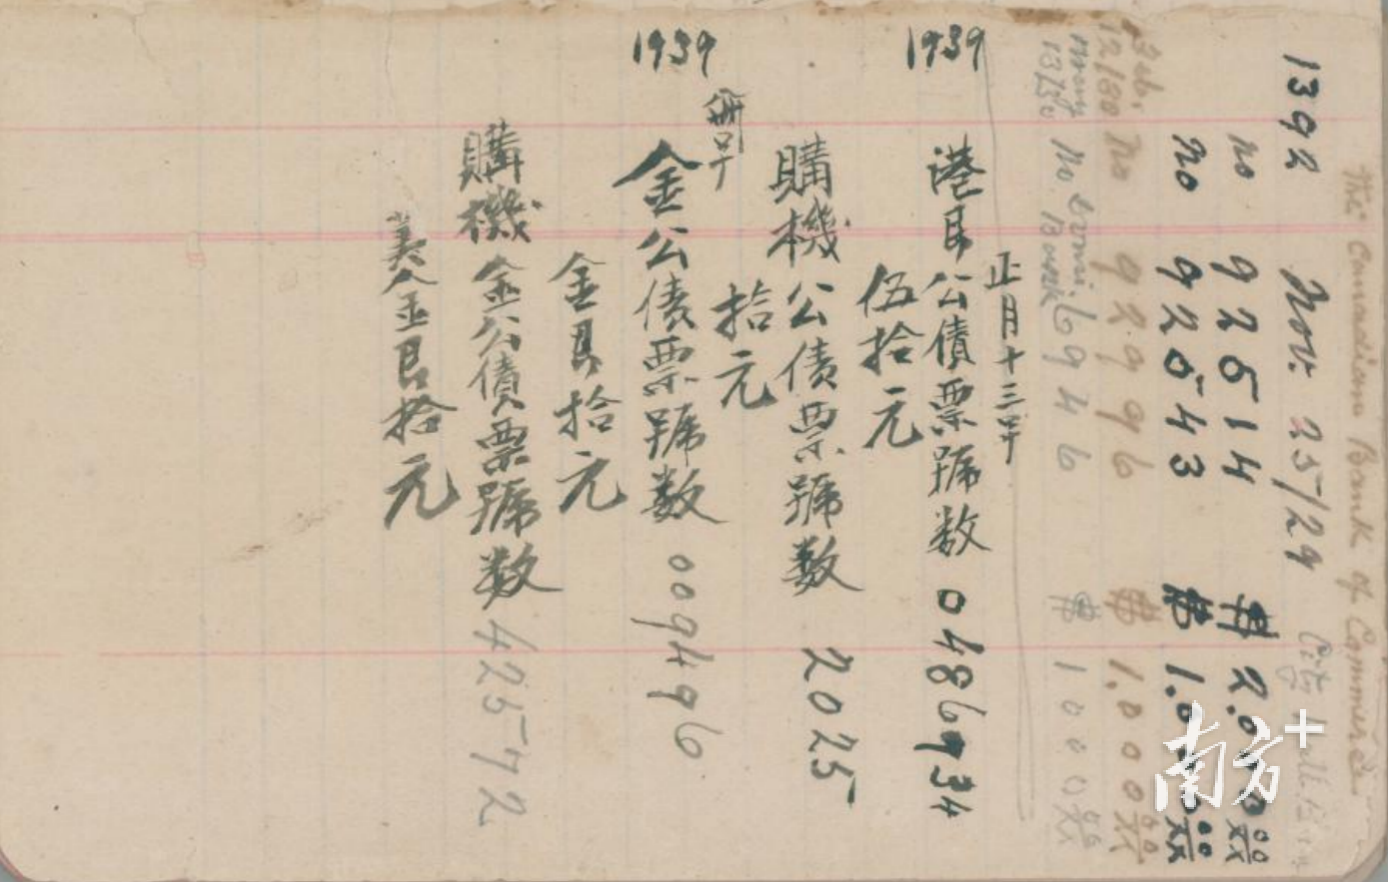 The Canadian Bank of Commerce
1392 Nov. 25/29
no 92514 # 2.000
no 92543 # 1.000
Feb. 12/80 no 92996 # 1.000
13/30 No. 69446 # 1000
1939 正月十三早
港艮公債票號数 0486934
伍拾元
購機公債票號数 2025
拾元
1939
金公債票號数 009496
金艮拾元
購機金公債票號数 42572
美金艮拾元
南方+